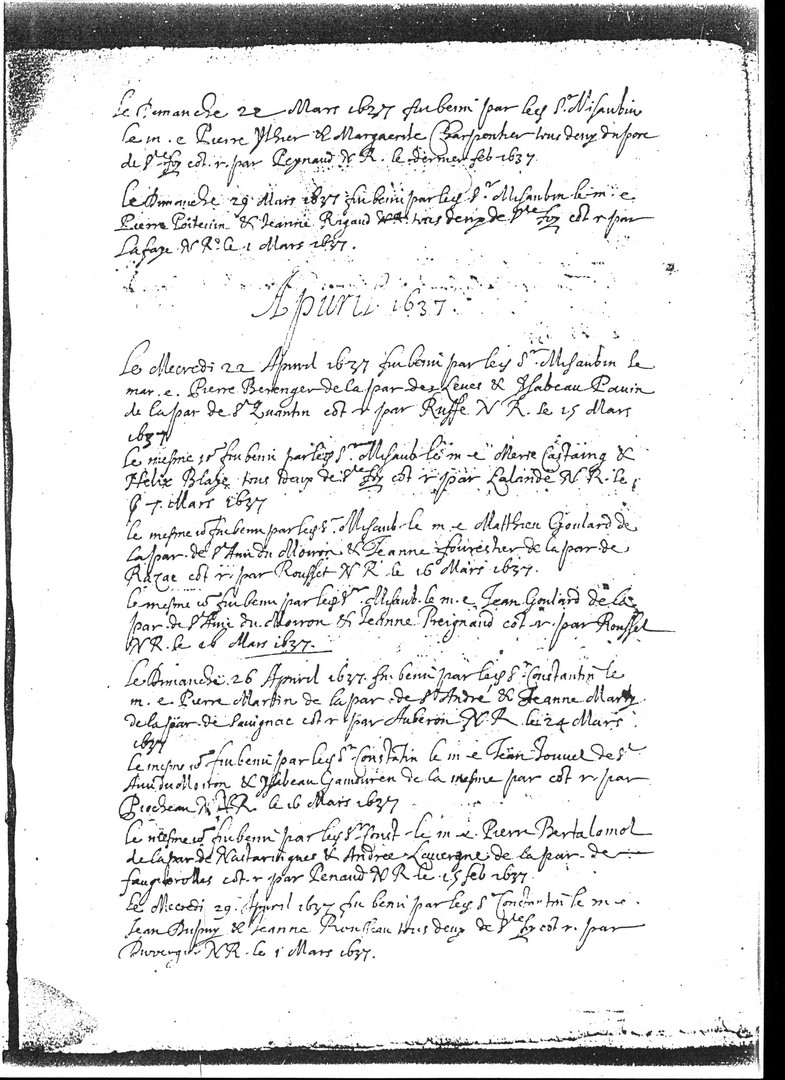 Le Dimanche 22 Mars 1637 fut beni par led Sr Misaubin
le m. e Pierre Ythier & Marguerite Charpentier tous deux du pore
de Ste foy cot. r. par Peynaud N R. le dernier feb 1637
Le Dimanche 29 Mars 1637 fut beni par led Sr. Misaubin le m. e.
Pierre Poitevin & Jeanne Rigaud tous deux de Ste foy cot r par
Lafaye N Ro. le 1 Mars 1637.
Apuril 1637.
Le Mecredi 22 Apvril 1637 fut beni par led Sr Misaubin le
mar. e. Pierre Berenger de la par des Leves & Isabeau Pauin
de la par de St Quantin cot r par Ruffe N R. le 15 Mars
1637
Le mesme io fut beni par led Sr. Misaub le m e Merie Castaing &
Helix Blaze tous deux de Ste foy cot r par Lalande N R. le
7. Mars 1637
le mesme io fut beni par led Sr. Misaub. le m. e Matthieu Goulard de
la par. de St Avit du Moiron & Jeanne fourestier de la par. de
Razac cot r. par Rousset N R. le 16 Mars 1637.
le mesme io fut beni par led Sr Misaub. le m. e. Jean Goulard de la
par de St Avit du Moiron & Jeanne Preignaud cot. r. par Rousset
N R. le 16 Mars 1637.
Le Dimanche 26 Apvril 1637. fut beni par led Sr Constantin le
m. e Pierre Martin de la par. de St André & Jeanne Marty
de la par. de Sauignac cot r par Auberon N R. le 24 Mars
1637
Le mesme io fut beni par led Sr Constatin le m e Jean Jouuel de St
Avit du Moiron & Isabeau Gamouren de la mesme par cot r. par
Piocheau N R. le 16 Mars 1637
le mesme io fut beni par led Sr Const. le m e Pierre Bertalomol
de la par de Nastaringues & Andree Lauvergne de la par. de
faugerolles cot. r par Penaud N R le 15 feb 1637
Le Mecredi 29. Apvril 1637 fut beni par led Sr Constantin le m. e.
Jean Dupuy & Jeanne Rousseau tous deux de Ste foy cot r. par
Duvergier N R. le 1 Mars 1637.